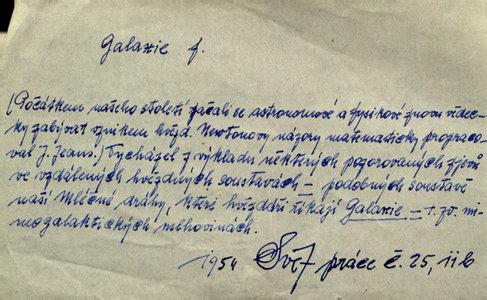 Galaxie f.
(Počátkem našeho století začali se astronomové a fysikové znovu vědec-
ky zabývat vznikem hvězd. Newtonovy názory matematicky propraco-
val J. Jeans.) Vycházel z výkladu některých pozorovaných zjevů
ve vzdálených hvězdných soustavách – podobných soustavě
naší Mléčné dráhy, které hvězdáři říkají Galaxie – t. zv. mi-
mogalaktických mlhovinách.
1954 SvěJ práce č. 25, 11b